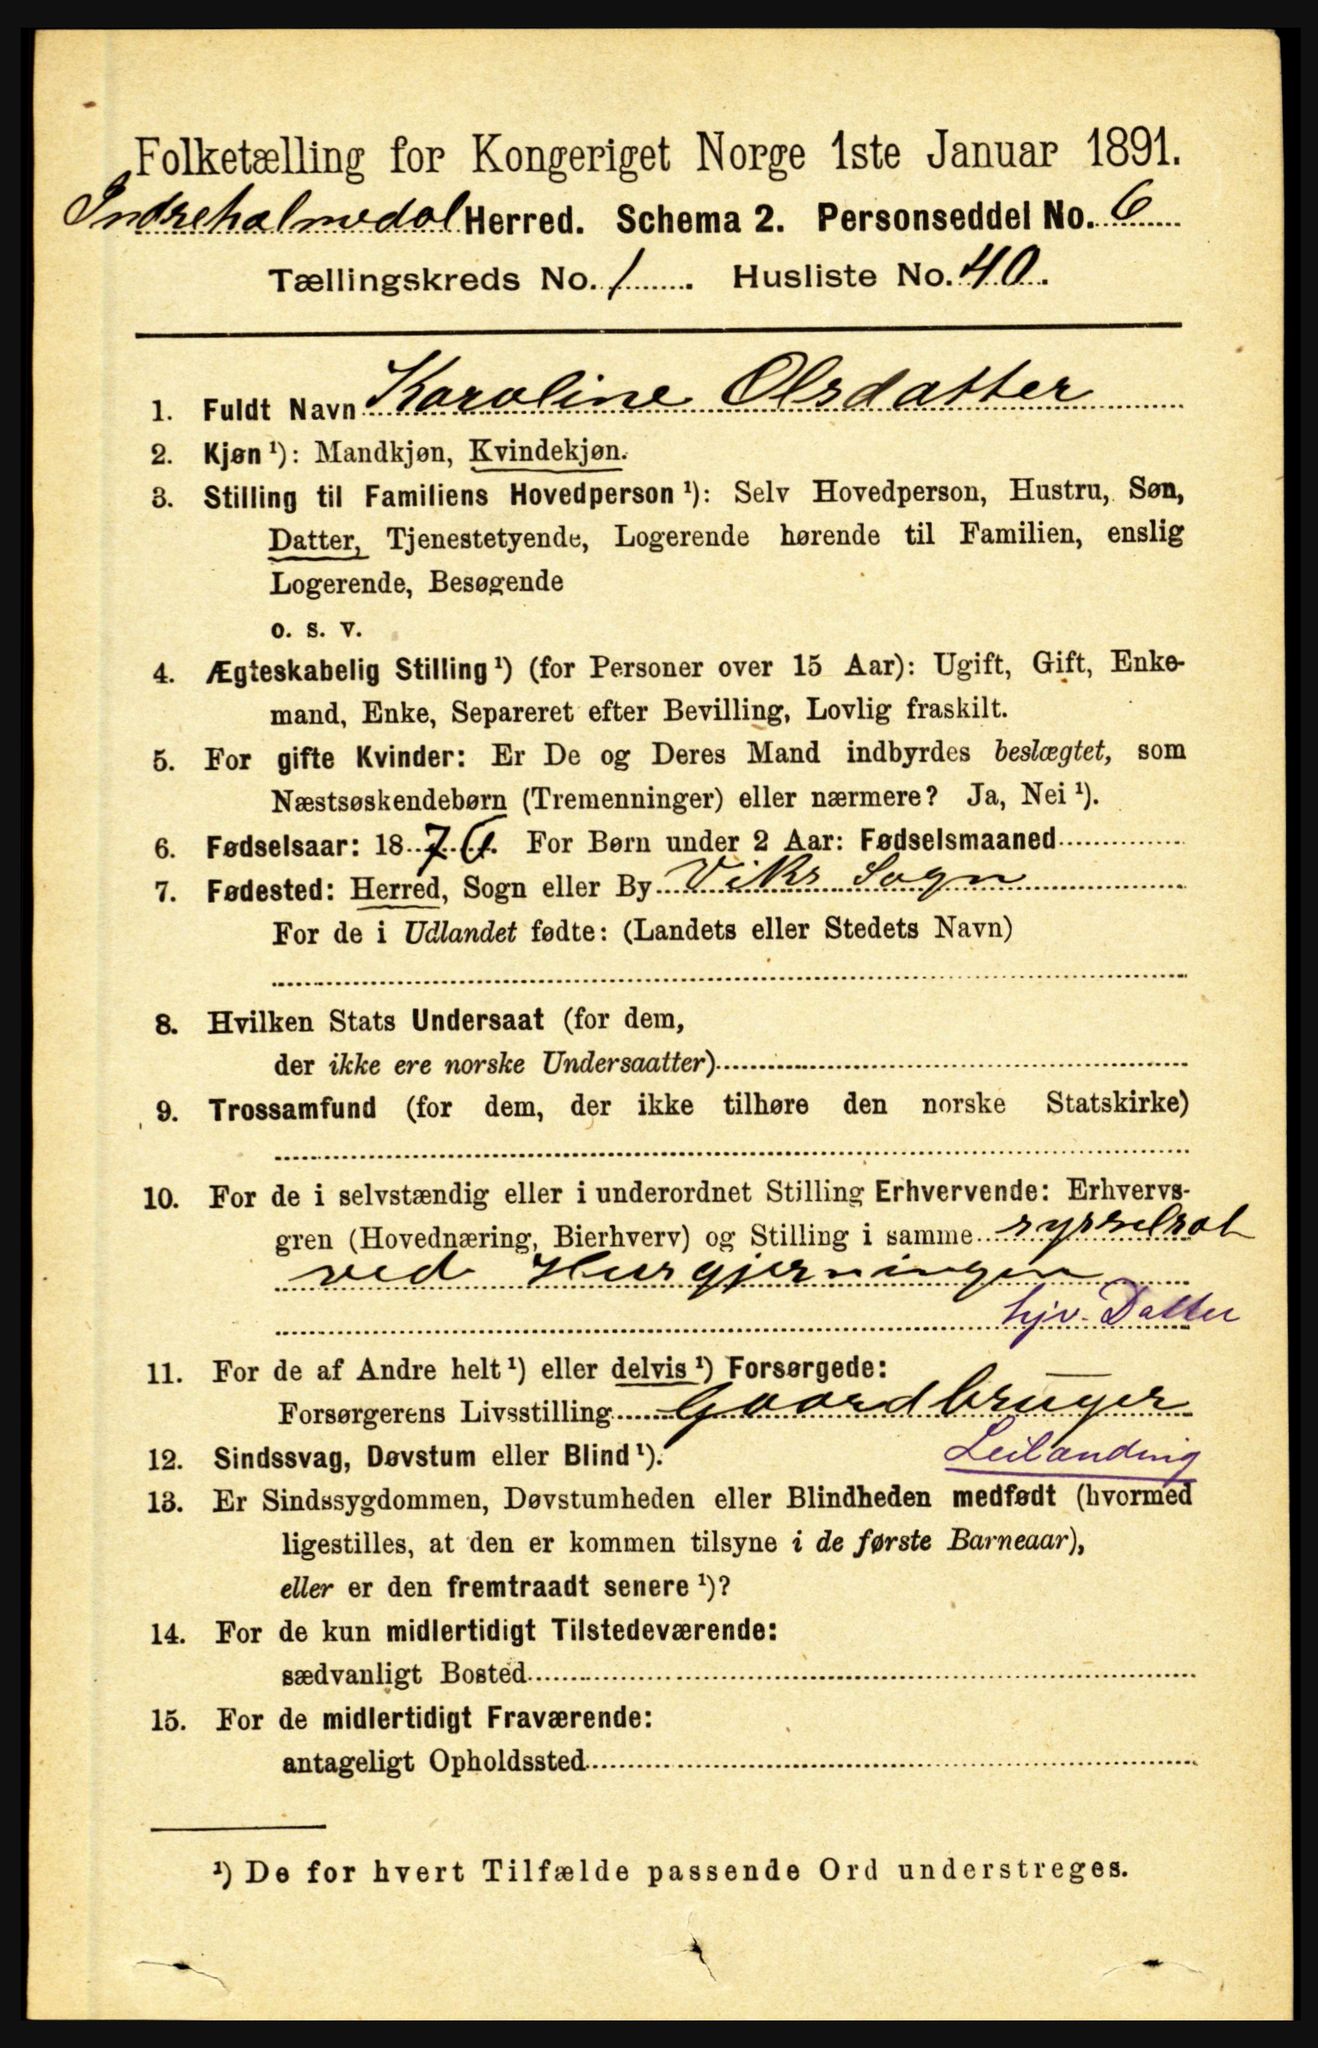 Folketælling for Kongeriget Norge 1ste Januar 1891.
Indreholmedal Herred. Schema 2. Personseddel No. 6
Tællingskreds No. 1. Husliste No. 40.
1. Fuldt Navn Karoline Olsdatter
2. Kjøn ¹): Mandkjøn, Kvindekjøn.
3. Stilling til Familiens Hovedperson ¹): Selv Hovedperson, Hustru, Søn,
Datter, Tjenestetyende, Logerende hørende til Familien, enslig
Logerende, Besøgende
o. s. v.
4. Ægteskabelig Stilling ¹) (for Personer over 15 Aar): Ugift, Gift, Enke-
mand, Enke, Separeret efter Bevilling, Lovlig fraskilt.
5. For gifte Kvinder: Er De og Deres Mand indbyrdes beslægtet, som
Næstsøskendebørn (Tremenninger) eller nærmere? Ja, Nei ¹).
6. Fødselsaar: 1876. For Børn under 2 Aar: Fødselsmaaned
7. Fødested: Herred, Sogn eller By Viks Sogn
For de i Udlandet fødte: (Landets eller Stedets Navn)
8. Hvilken Stats Undersaat (for dem,
der ikke ere norske Undersaatter)
9. Trossamfund (for dem, der ikke tilhøre den norske Statskirke)
10. For de i selvstændig eller i underordnet Stilling Erhvervende: Erhvervs-
gren (Hovednæring, Bierhverv) og Stilling i samme sysselsat
ved Husgjerningen
hjv. Datter
11. For de af Andre helt ¹) eller delvis ¹) Forsørgede:
Forsørgerens Livsstilling Gaardbruger
12. Sindssvag, Døvstum eller Blind ¹). Leilænding
13. Er Sindssygdommen, Døvstumheden eller Blindheden medfødt (hvormed
ligestilles, at den er kommen tilsyne i de første Barneaar),
eller er den fremtraadt senere ¹)?
14. For de kun midlertidigt Tilstedeværende:
sædvanligt Bosted
15. For de midlertidigt Fraværende:
antageligt Opholdssted
¹) De for hvert Tilfælde passende Ord understreges.